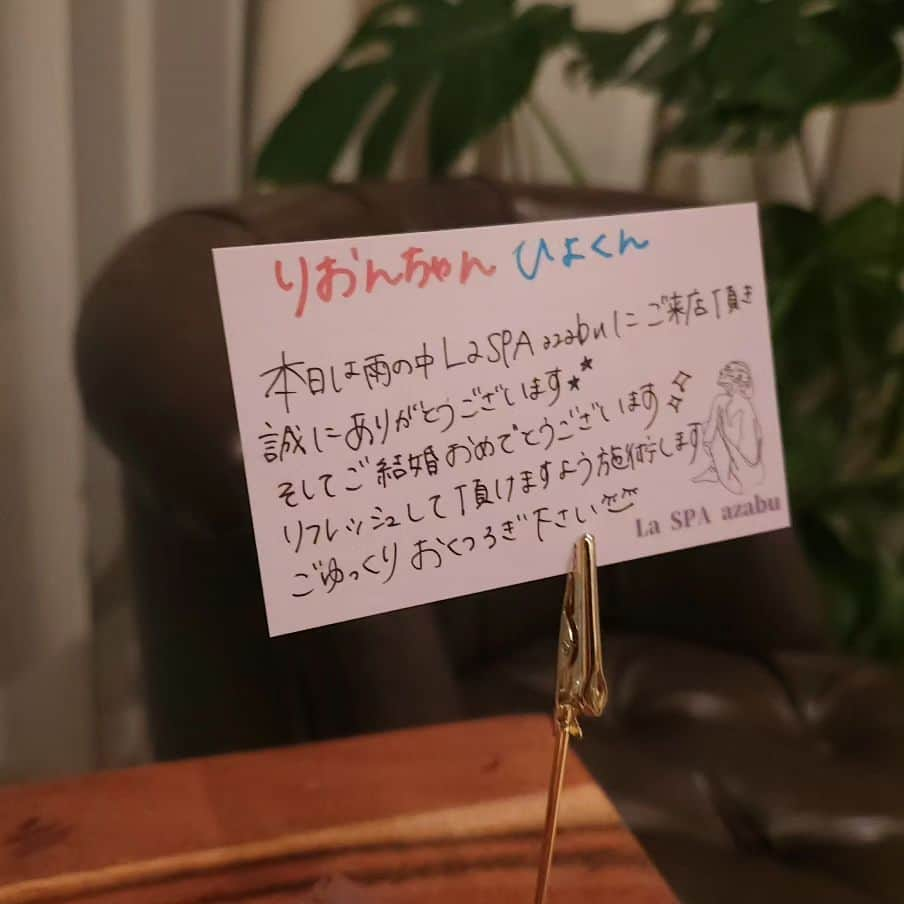 りおんちゃん ひよくん
本日は雨の中 La SPA azabuにご来店頂き
誠にありがとうございます
そしてご結婚おめでとうございます
リフレッシュして頂けますよう施術します
ごゆっくりおくつろぎ下さい
La SPA azabu